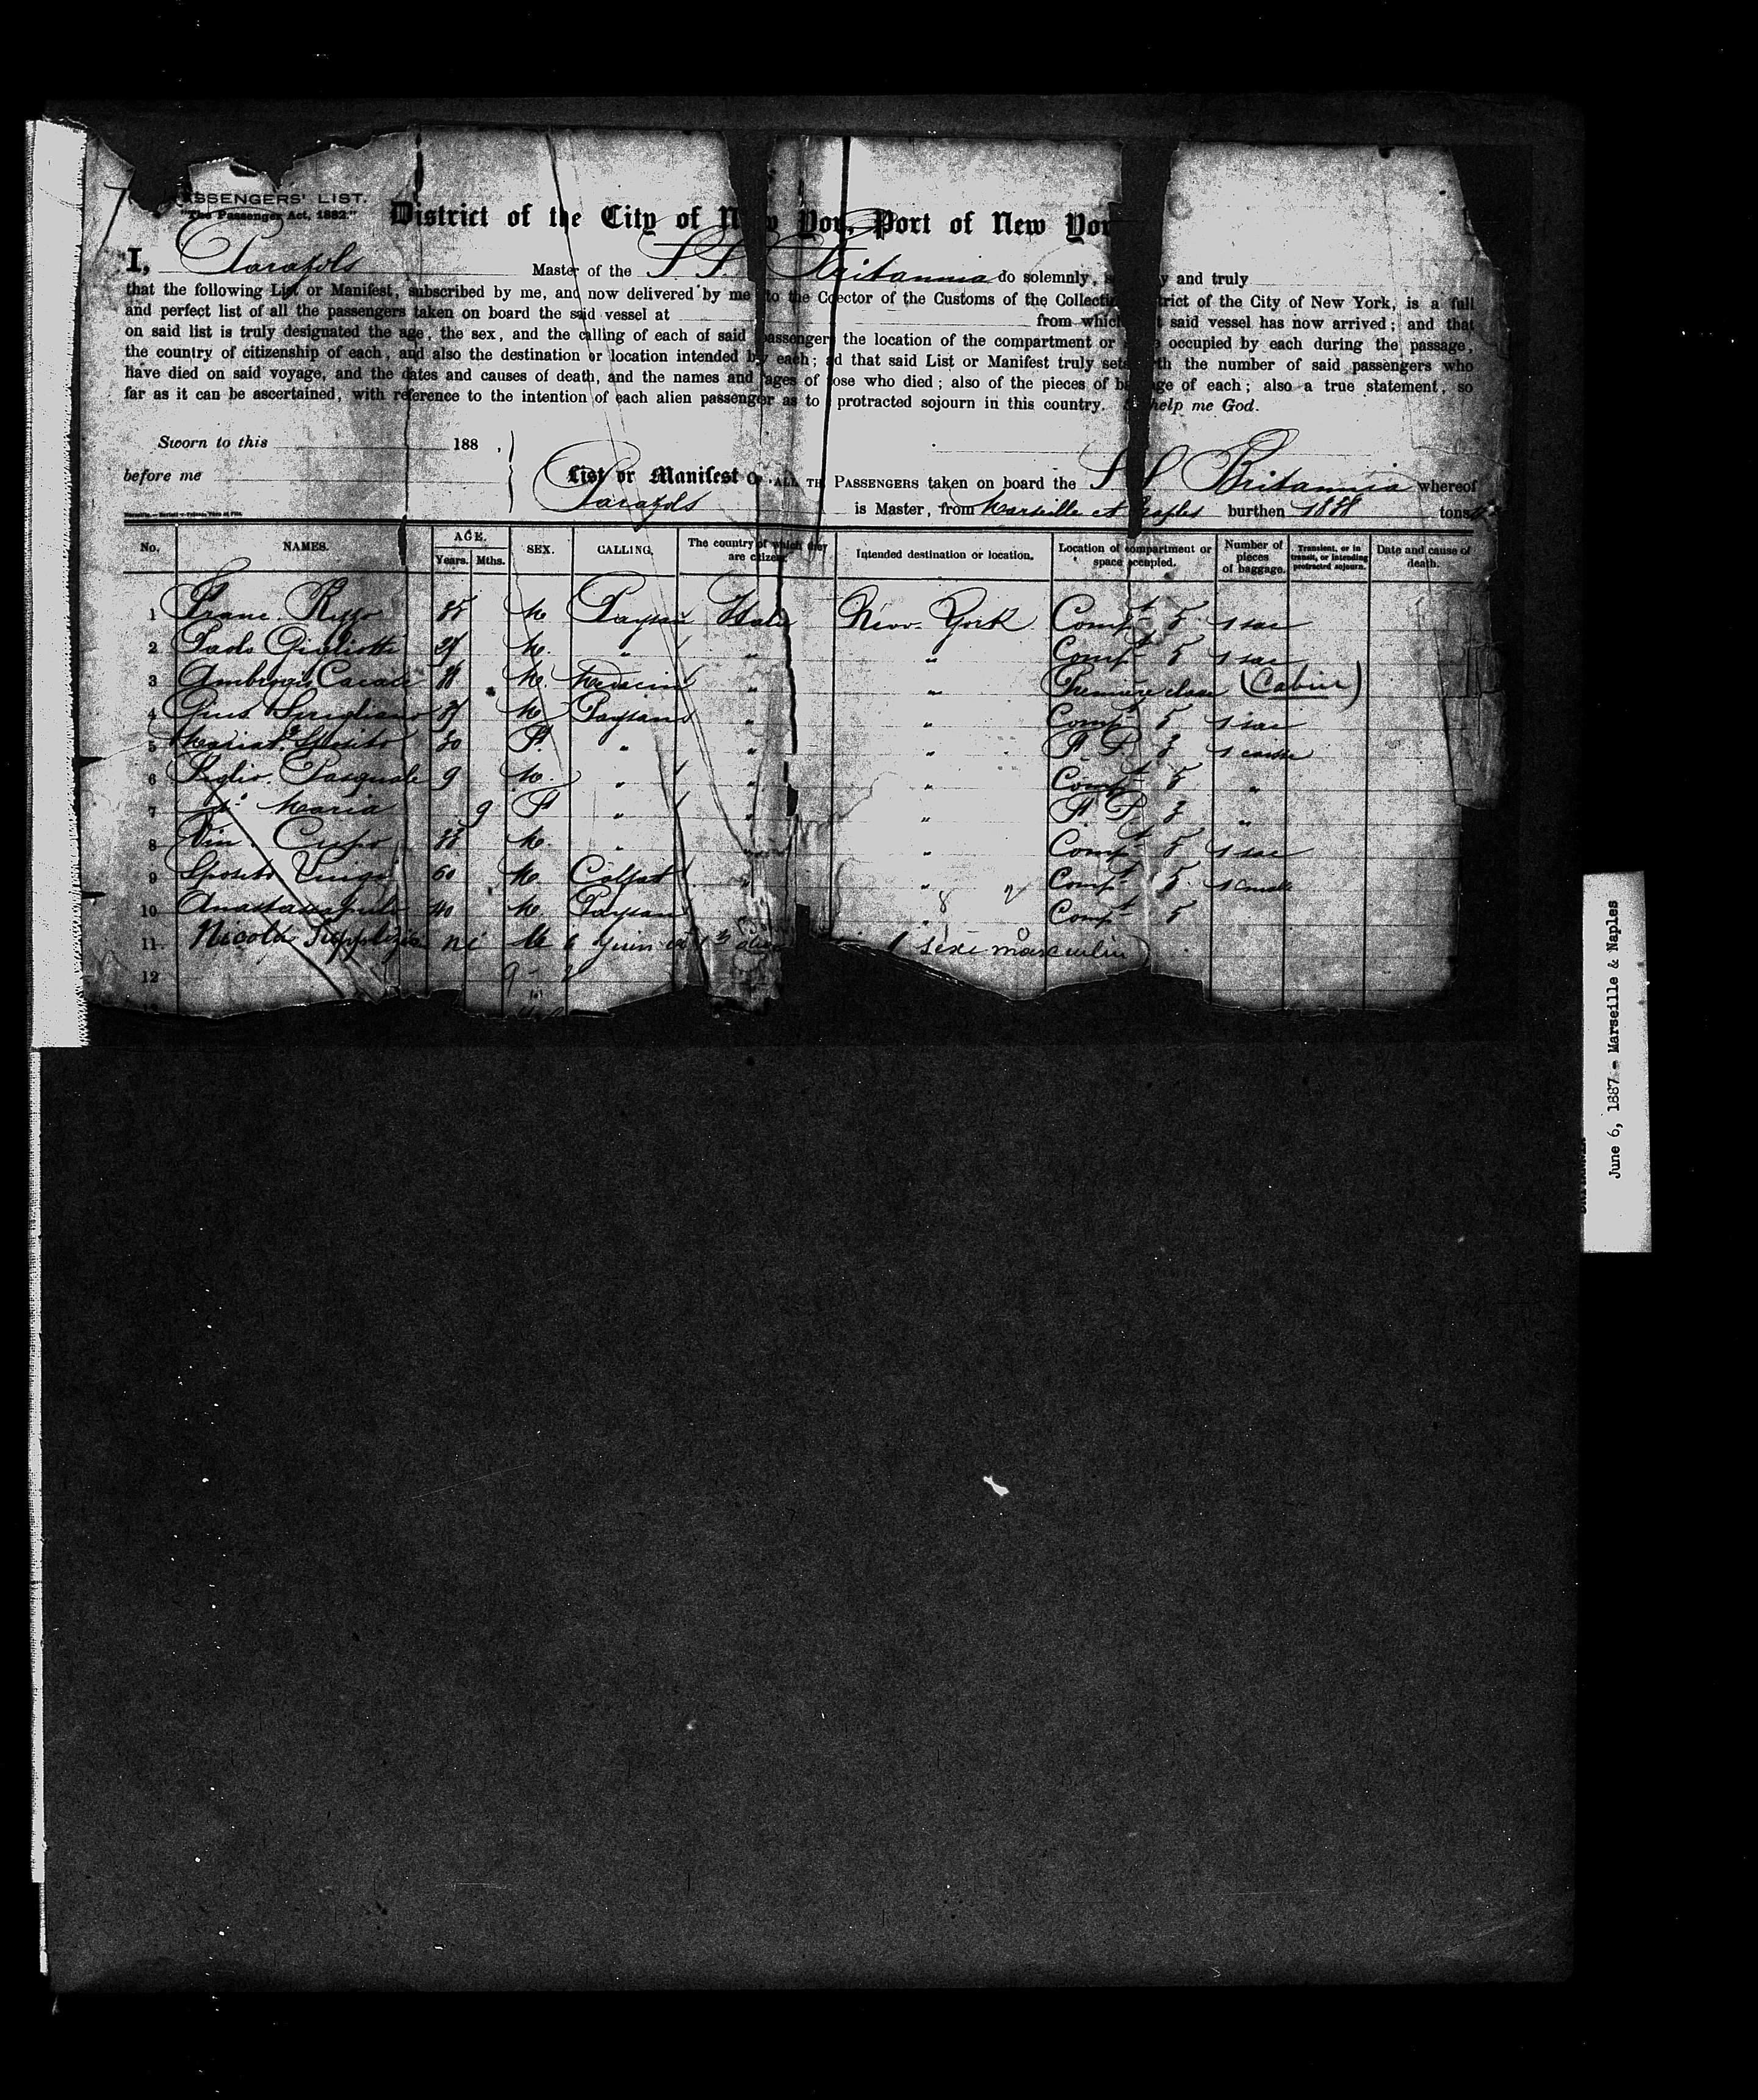 PASSENGERS' LIST.
"The Passenger Act, 1882."
District of the City of New Yor, Port of New Yor
I, Master of the S S Britannia do solemnly, s y and truly
that the following List or Manifest, subscribed by me, and now delivered by me to the Coector of the Customs of the Collectin trict of the City of New York, is a full
and perfect list of all the passengers taken on board the said vessel at from which said vessel has now arrived; and that
on said list is truly designated the age, the sex, and the calling of each of said passenger the location of the compartment or occupied by each during the passage,
the country of citizenship of each, and also the destination or location intended by each; d that said List or Manifest truly sets rth the number of said passengers who
have died on said voyage, and the dates and causes of death, and the names and ages of ose who died; also of the pieces of ba ge of each; also a true statement, so
far as it can be ascertained, with reference to the intention of each alien passenger as to protracted sojourn in this country. help me God.
Sworn to this 188 ,
before me
List or Manifest OF ALL TH PASSENGERS taken on board the S S Britannia whereof
is Master, from Marseille et Naples burthen 18 tons
No. NAMES. AGE. Years. Mths. SEX. CALLING. The country of which they are citizens. Intended destination or location. Location of compartment or space occupied. Number of pieces of baggage. Transient, or in transit, or intending protracted sojourn. Date and cause of death.
1 Franc. Rizzo 35 M Paysan Italie New-York Compt 5 1 sac
2 Paolo Gigliotti M. " " " Compt 5 1 sac
3 M. Médecin " " Première classe (Cabin)
4 M Paysans " " Compt 5 1 sac
5 Sposito 30 F " " " F P 3 1 caisse
6 Figlio. Pasquale 9 M. " " " Compt 5 "
7 Maria 9 F " " " F P 3 "
8 Vin. Crispo M. " " " Compt 5 1 sac
9 Sposito 60 M. " " Compt 5 1
10 40 M. Paysan " Compt 5
11. Nicola M 6 sexe masculin
12
13
June 6, 1887 - Marseille & Naples